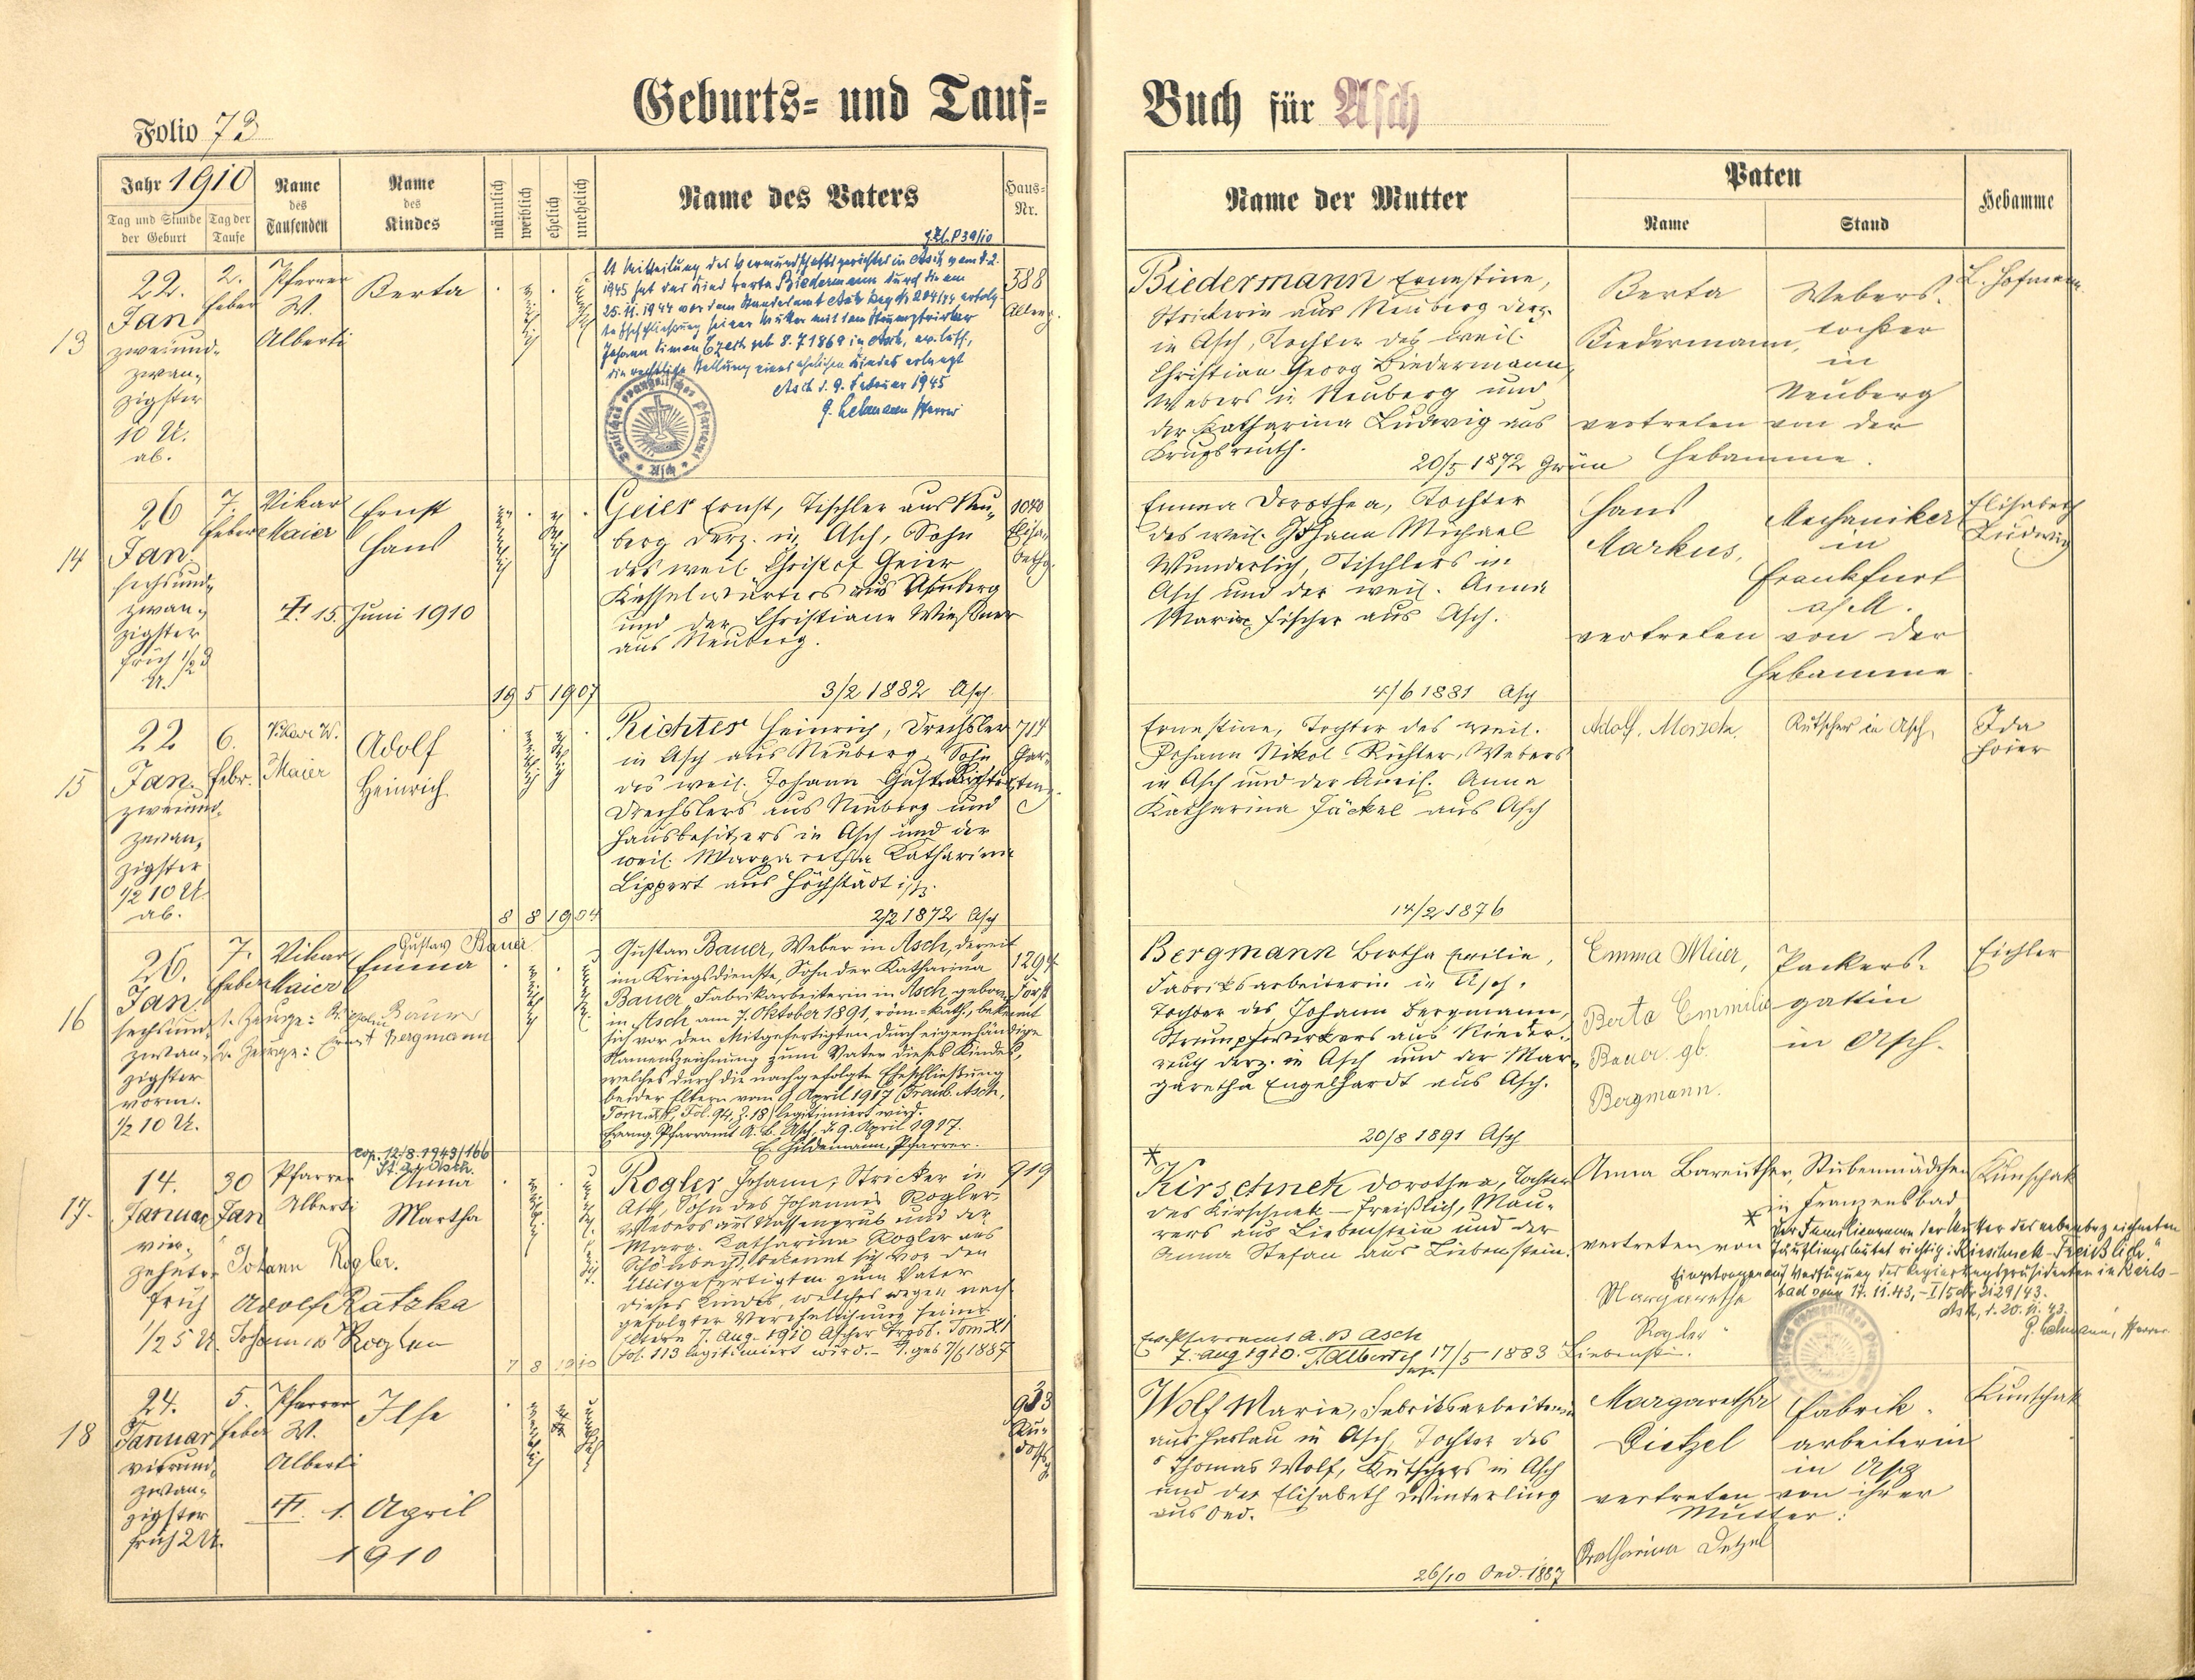 Geburts- und Tauf-
Buch für Asch
Folio 73
Jahr 1910
Tag und Stunde der Geburt
Tag der Taufe
Name des Taufenden
Name des Kindes
männlich
weiblich
ehelich
unehelich
Name des Vaters
Haus-Nr.
Name der Mutter
Paten
Name
Stand
Hebamme
13
22.
Jan
zweiund-
zwan-
zigster
10 U.
ab.
2.
Feber
Pfarrer
W.
Alberti
Berta
weiblich
unehelich
g. Zl. P 39/10
Lt Mitteilung des Vormundschaftsgerichtes in Asch vom 8.2.
1945 hat das Kind Berta Biedermann durch die am
25.11.1944 vor dem Standesamt Asch erfolg-
te Eheschließung seiner Mutter mit dem Strumpfwirker
Johann Simon geb 8.7.1869 in Asch, ev. luth,
die rechtliche Stellung eines ehelichen Kindes erlangt
Asch d. 9. Februar 1945
G. Lehmann Pfarrer
588
Biedermann Ernestine,
Strickerin aus Neuberg derz.
in Asch, Tochter des weil.
Christian Georg Biedermann,
Webers in Neuberg und
der Katharina Ludwig aus
Krugsreuth.
20/5 1872 Grün
Berta
Biedermann,
vertreten von der
Hebamme.
Webers-
tochter
in
Neuberg
L. Hofmann
14
26
Jan.
sechsund-
zwan-
zigster
früh 1/2 3
U.
7.
Feber
Vikar
Maier
Ernst
Hans
männlich
ehelich
15. Juni 1910
19 5 1907
Geier Ernst, Tischler aus Neu-
berg derz. in Asch, Sohn
des weil. Christof Geier
Kesselwärters aus Neuberg
und der Christiane Wießner
aus Neuberg.
3/2 1882 Asch.
1040
Elisa-
bethg.
Emma Dorothea, Tochter
des weil. Johann Michael
Wunderlich, Tischlers in
Asch und der weil. Anna
Maria Fischer aus Asch.
4/6 1881 Asch
Hans
Markus,
vertreten von der
Hebamme
Mechaniker
in
Frankfurt
a/M.
Elisabeth
Ludwig
15
22
Jan.
zweiund-
zwan-
zigster
1/2 10 U.
ab.
6.
Febr.
Vikar W.
Maier
Adolf
Heinrich
ehelich
8 8 1904
Richter Heinrich, Drechsler
in Asch aus Neuberg, Sohn
des weil. Johann Gustav Richter,
Drechslers aus Neuberg und
Hausbesitzers in Asch und der
weil. Margaretha Katharina
Lippert aus Höchstädt
2/2 1872 Asch
714
Gar-
teng.
Ernestine, Tochter des weil.
Johann Nikol Richter, Webers
in Asch und der weil. Anna
Katharina Jäckel aus Asch
14/2 1876
Adolf
Kutscher in Asch
Ida
Hoier
16
26.
Jan.
sechsund-
zwan-
zigster
vorm.
1/2 10 U.
7.
Feber
Vikar
Maier
Gustav Bauer
Emma
1. Zeuge:
2. Zeuge: Ernst Bergmann
weiblich
Gustav Bauer, Weber in Asch, derzeit
im Kriegsdienste, Sohn der Katharina
Bauer Fabrikarbeiterin in Asch, geboren
in Asch am 7. Oktober 1891, röm-kath., bekennt
sich vor den Mitgefertigten durch eigenhändige
Namenszeichnung zum Vater dieses Kindes,
welches durch die nachgefolgte Eheschließung
beider Eltern vom 9. April 1917 (Traub. Asch,
Tom. XII, Fol. 94, Z. 18) legitimiert wird.
Evang. Pfarramt A. B. Asch, d. 9. April 1917.
E. Hildemann, Pfarrer.
Bergmann Bertha Emilie,
Fabriksarbeiterin in Asch,
Tochter des Johann Bergmann,
Strumpfwirkers aus Nieder-
reuth derz. in Asch und der Mar-
garetha Engelhardt aus Asch.
20/8 1891 Asch
Emma Meier,
Berta Emmilie
Bauer gb.
Bergmann.
Packers-
gattin
in Asch.
Eichler
17.
14.
Januar
vier-
zehnter
früh
1/2 5 U.
30
Jan
Pfarrer
Alberti
cop. 12/8. 1943/166
St. A. Asch.
Anna
Martha
Johann Rogler.
Adolf Ratzka
7 8 1910
Rogler Johann, Stricker in
Asch, Sohn des Johannes Rogler,
Webers aus Nassengrub und der
Marg. Katharina Rogler aus
Schönbach, bekennt sich vor den
Mitgefertigten zum Vater
dieses Kindes, welches wegen nach-
gefolgter Verehelichung seiner
Eltern 7. Aug. 1910 Ascher Trgsb. Tom XI
Fol. 113 legitimiert wird.
919
*
Kirschnek Dorothea, Tochter
des Kirschnek - Treißlich, Mau-
rers aus Liebenstein und der
Anna Stefan aus Liebenstein.
Ev. Pfarramt A. B Asch
7. Aug 1910. T. Alberti
17/5 1883 Liebenstein.
Anna Bareuther, Stubenmädchen
in Franzensbad
vertreten von
Margaretha
Rogler
Kunschak
* Der Familienname der Mutter des nebenbezeichneten
Täuflings lautet richtig: "Kirschnek-Treißlich."
Eingetragen auf Verfügung des Regierungspräsidenten in Karls-
bad vom 17. 11. 43,
Asch, d. 20. 11. 43.
G. Lehmann, Pfarrer
18
24.
Januar
vierund-
zwan-
zigster
früh 2 U.
5.
Feber
Pfarrer
W.
Alberti
Ilse
weiblich
unehelich
1. April
1910
933
Ru-
dolfs
g.
Wolf Marie, Fabriksarbeiterin
aus Haslau in Asch, Tochter des
Thomas Wolf, Kutschers in Asch
und der Elisabeth Winterling
aus Oed.
26/10 Oed. 1887
Margaretha
Dietzel
vertreten von ihrer
Mutter:
Katharina
Fabrik-
arbeiterin
in Asch
Kunschak